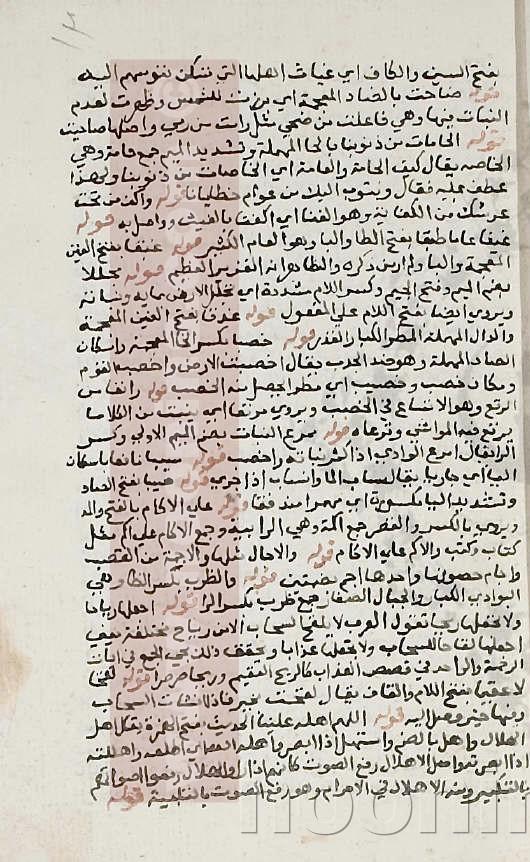 بفتح السين والكاف اي غياث اهلها التي تسكن نفوسهم اليه
قوله ضاحت بالضاد المعجمة اي برزت للشمس وظهرت لعدم
النبات فيها وهي فاعلت من ضحي مثل رامت من رمي واصلها ضاحيت
قوله الحامات من ذنوبنا بالحا المهملة وتشديد الميم جمع حامة وهي
الخاصه يقال كيف الحامة والعامة اي الخاصات من ذنوبنا ولهذا
عطف عليه فقال ونتوب اليك من عوام خطايانا قوله واكف من تحت
عرشك من الكفاية وهو الغنا اي اكفنا بالغيث وواصل به قوله
غيثا عاما طبقا بفتح الطا والبا وهو العام الكثير قوله غبقا بفتح الغين
المعجمة والبا ولم ار من ذكره والظاهر انه الغزير العظيم قوله مجللا
بضم الميم وفتح الجيم وكسر اللام مشددة اي يجلل الارض بمايه ونباته
ويروي ايضا بفتح اللام علي المفعول قوله غدقا بفتح الغين المعجمة
والدال المهملة المطر الكبار القطر قوله خصبا بكسر الخا المعجمة واسكان
الصاد المهملة وهو ضد الجدب يقال اخصبت الارض واخصب القوم
ومكان خصب وخصيب اي مطر يحصل منه الخصب قوله راتعا من
الرتع وهو الاتساع في الخصب ويروي مرتعا اي ينبت من الكلا ما
يرتع فيه المواشي وترعاه قوله مرع النبات بضم الميم الاولي وكسر
الرا يقال امرع الوادي اذا كثر نباته واخصب قوله سيبا نافعا باسكان
اليا اي جاريا يقال ساب الما وانساب اذا جري قوله صيبا بفتح الصاد
وتشديد اليا مكسورة اي منهمرا متدفقا قوله علي الاكام بالفتح والمد
ويروي بالكسر والقصر جمع اكمة وهي الرابية وجمع الاكام علي اكم مثل
كتاب وكتب والاكم علي الاكام قوله والاجام مثلها والاجمة من القصب
واجام حصونها واحدها اجم بضمتين قوله والظرب بكسر الظا وهي
البوادي الكبار والجبال الصغار جمع ظرب بكسر الرا قوله اجعلها رياحا
ولا تجعلها ريحا تقول العرب لا يلقح السحاب الا من رياح مختلفة يعني
اجعلها لقاحا للسحاب ولا تجعلها عذابا وتحقق ذلك مجي الجمع في ايات
الرحمة والواحد في قصص العذاب كالريح العقيم وريحا صرصرا قوله لقحا
لا عقيما بفتح اللام والقاف يقال لقحت بخير فاذا انشات السحاب
وفيها خير وصل اليه قوله اللهم اهله علينا الحديث بفتح الهمزة يقال اهل
الهلال واهل بالضم واستهل اذا ابصر واهله الله اي اطلعه واهللته
اذا ابصرته واصل الاهلال رفع الصوت كانهم اذا راوا الهلال رفعوا اصواتهم
بالتكبير ومنه الاهلال في الاحرام وهو رفع الصوت بالتلبية قوله